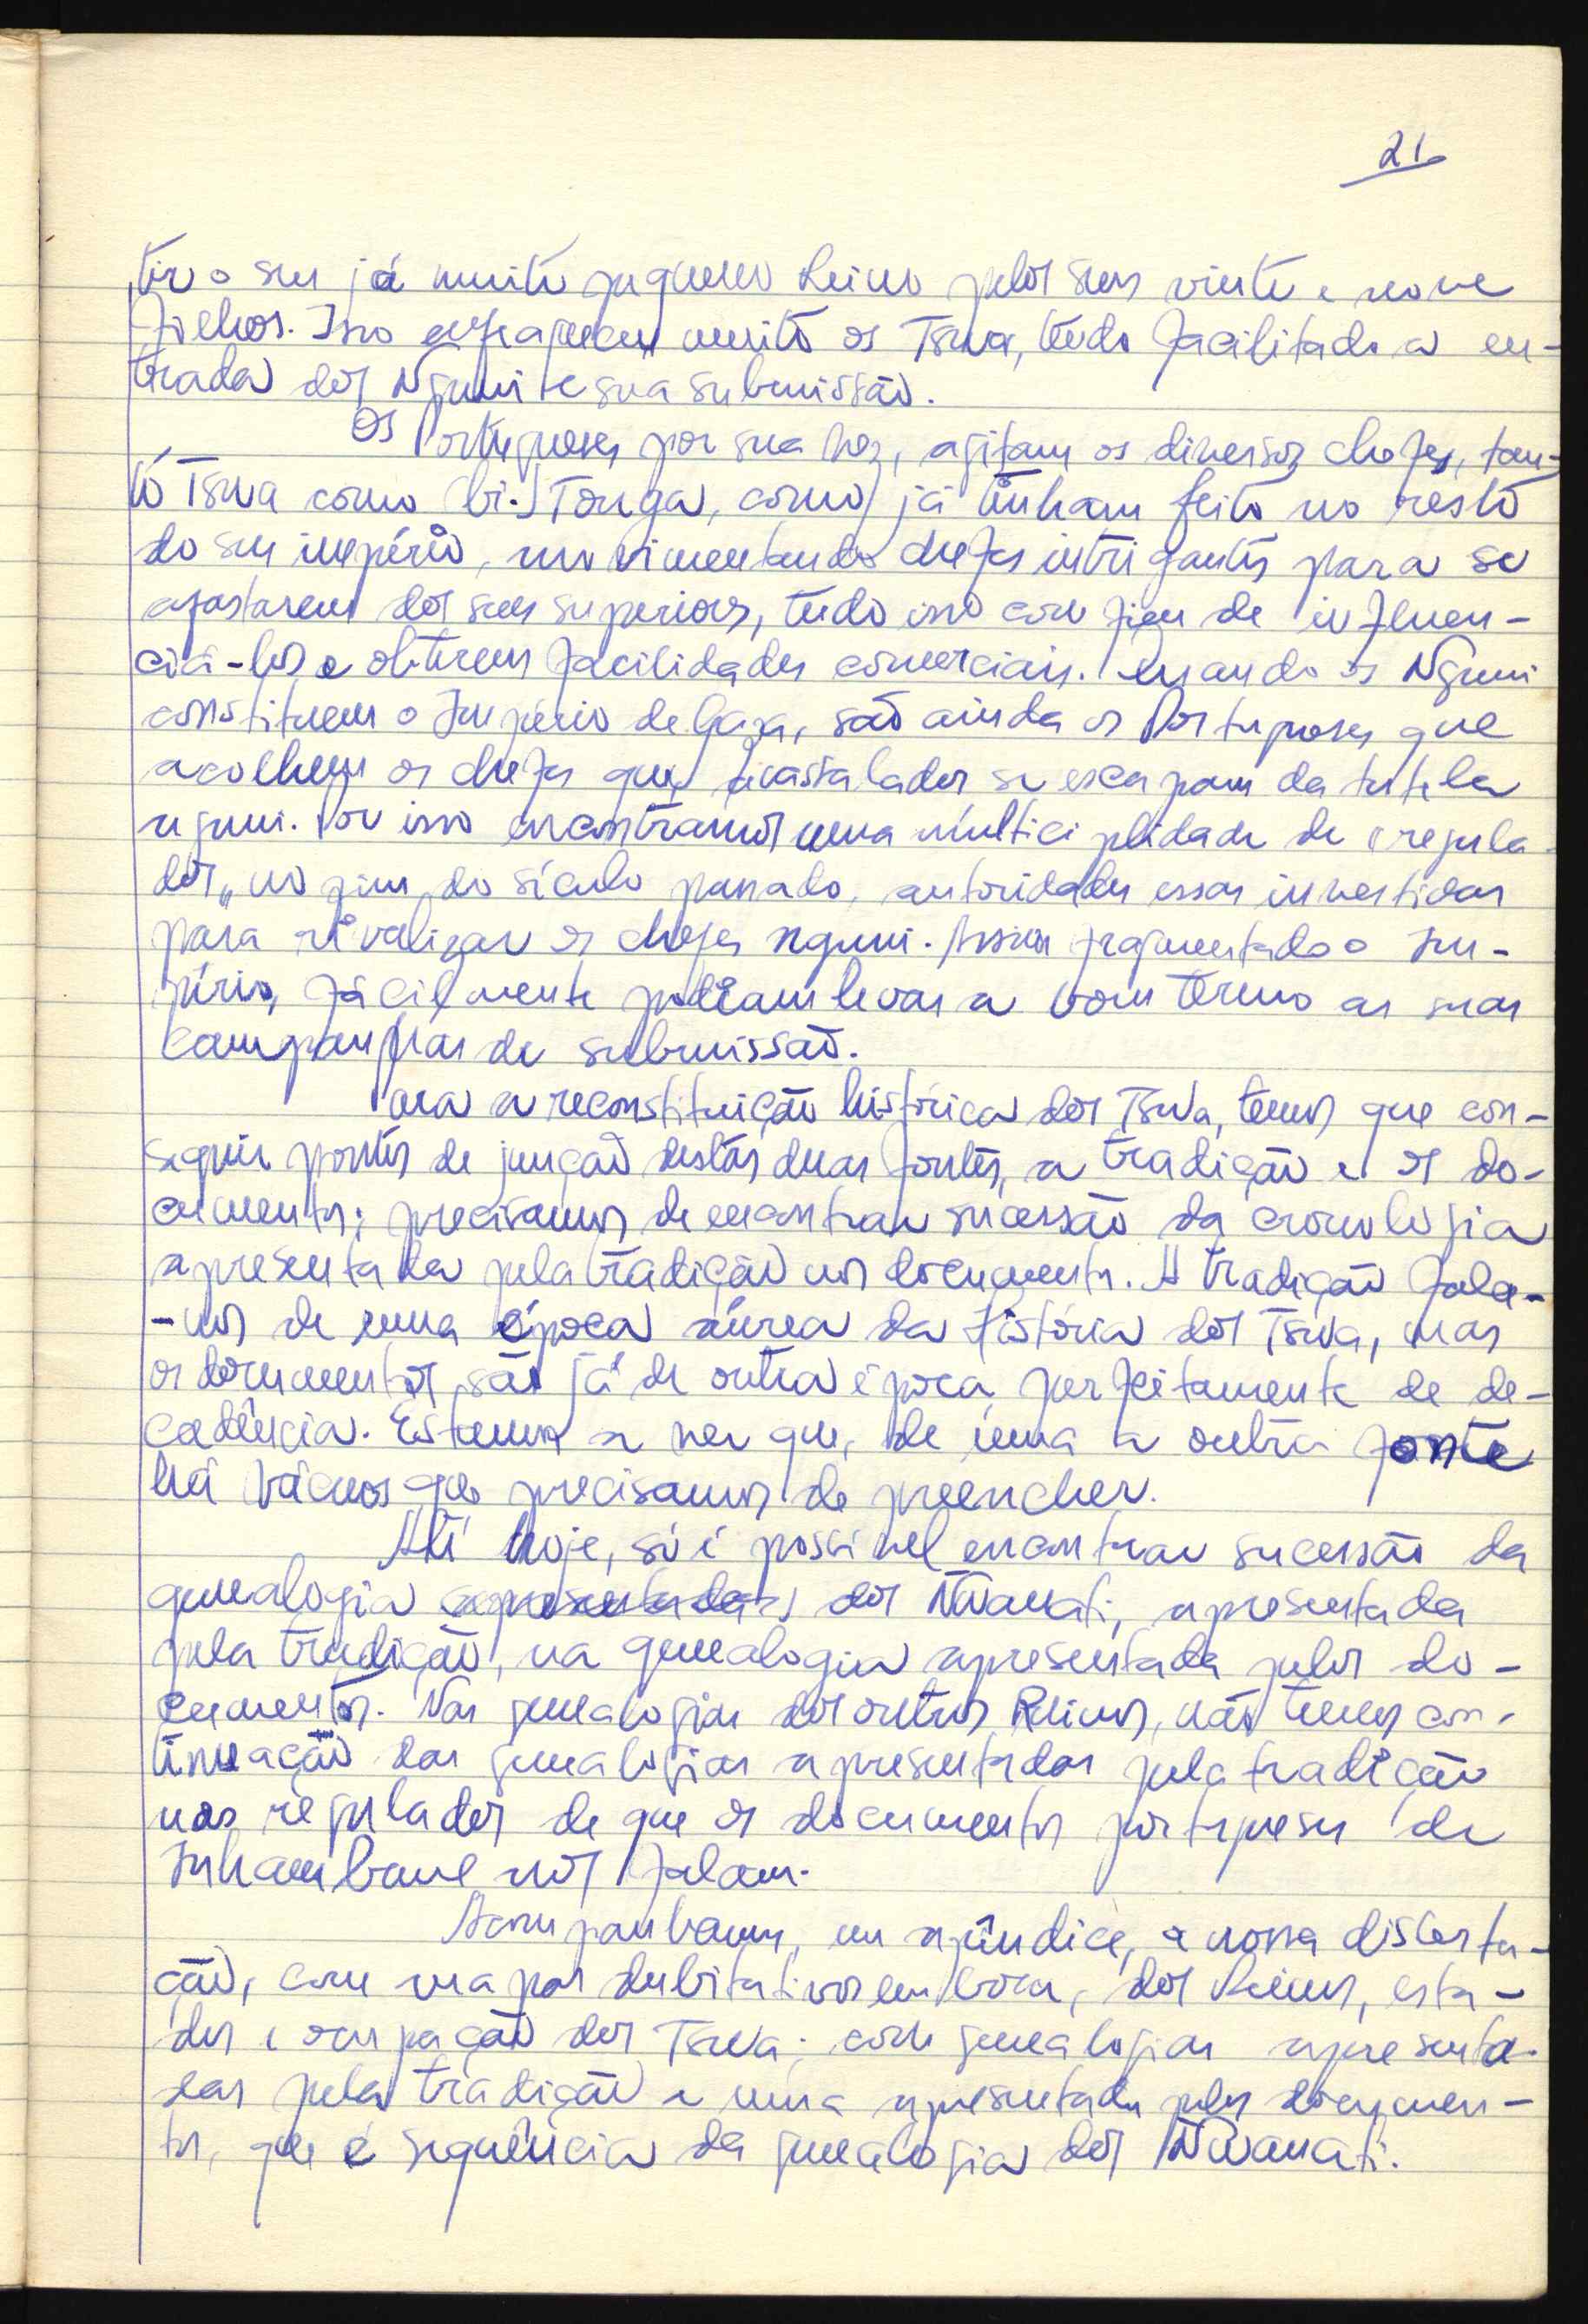 21
tir o seu já muito pequeno Reino pelos seus vinte e nove
filhos. Isso enfraqueceu muito os Tswa, tendo facilitado a en-
trada dos Nguni e sua submissão.
Os Portugueses por sua vez, agitam os diversos chefes, tan-
to Tswa como bi-Tonga, como já tinham feito no resto
do seu império, movimentando chefes intrigantes para se
afastarem dos seus superiores, tudo isso com fim de influen-
ciá-los e obterem facilidades comerciais. Quando os Nguni
constituem o Império de Gaza, são ainda os Portugueses que
acolhem os chefes que, avassalados se escapam da tutela
nguni. Por isso encontramos uma multiciplidade de "regula-
dos" no fim do século passado, autoridades essas investidas
para rivalizar os chefes nguni. Assim fragmentado o Im-
pério, fácilmente podiam levar a bom termo as suas
campanhas de submissão.
Para a reconstituição histórica dos Tswa, temos que con-
seguir pontos de junção destas duas fontes, a tradição e os do-
cumentos; precisamos de encontrar sucessão da cronologia
apresentada pela tradição nos documentos. A tradição fala-
-nos de uma época áurea da História dos Tswa, mas
os documentos são já de outra época, perfeitamente de de-
cadência. Estamos a ver que, de uma a outra fonte
há vácuos que precisamos de preencher.
Até hoje, só é possível encontrar sucessão da
genealogia apresentada dos Nwanati, apresentada
pela tradição, na genealogia apresentada pelos do-
cumentos. Nas genealogias dos outros Reinos, não temos con-
tinuação das genealogias apresentadas pela tradição
nos regulados de que os documentos portugueses de
Inhambane nos falam.
Acompanhamos, em apêndice, a nossa disserta-
ção, com mapas dubitativos embora, dos Reinos, esta-
dos e ocupação dos Tswa; com genealogias apresenta-
das pela tradição e uma apresentada pelos documen-
tos, que é sequência da genealogia dos Nwanati.